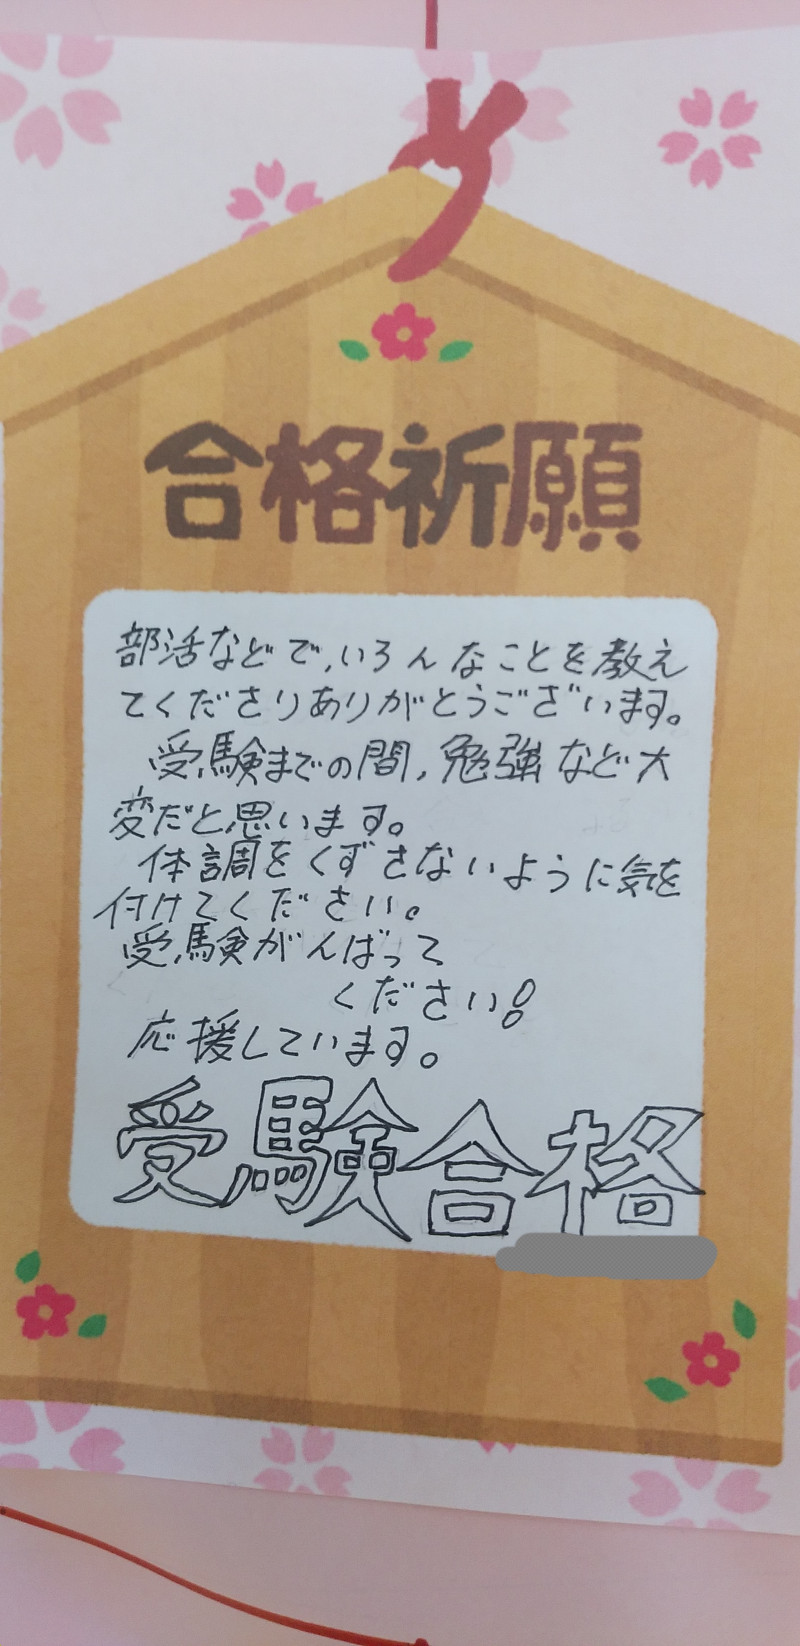 合格祈願
部活などで、いろんなことを教え
てくださりありがとうございます。
受験までの間、勉強など大
変だと思います。
体調をくずさないように気を
付けてください。
受験がんばって
ください!
応援しています。
受験合格